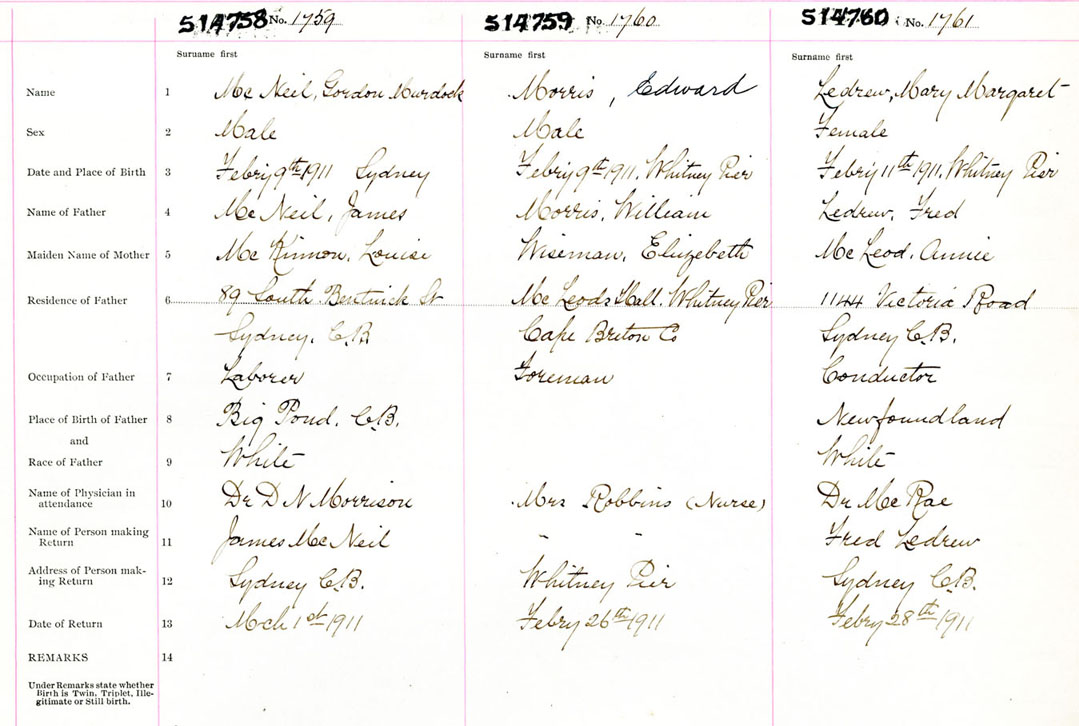 514758 No. 1759 514759 No. 1760 514760 No. 1761
Surname first Surname first Surname first
Name 1 Mc Neil, Gordon Murdock Morris, Edward Ledrew, Mary Margaret
Sex 2 Male Male Female
Date and Place of Birth 3 Febry 9th 1911 Sydney Febry 9th 1911, Whitney Pier Febry 11th 1911, Whitney Pier
Name of Father 4 Mc Neil, James Morris, William Ledrew, Fred
Maiden Name of Mother 5 Mc Kinnon, Louise Wiseman, Elizebeth Mc Leod, Annie
Residence of Father 6 89 South Bentnick St Mc Leods Hall, Whitney Pier 1144 Victoria Road
Sydney, C.B. Cape Breton Co Sydney C.B.
Occupation of Father 7 Laborer Foreman Conductor
Place of Birth of Father 8 Big Pond, C.B. Newfoundland
and
Race of Father 9 White White
Name of Physician in
attendance 10 Dr D N Morrison Mrs Robbins (Nurse) Dr Mc Rae
Name of Person making
Return 11 James Mc Neil " " Fred Ledrew
Address of Person mak-
ing Return 12 Sydney C.B. Whitney Pier Sydney C.B.
Date of Return 13 Mch 1st 1911 Febry 26th 1911 Febry 28th 1911
REMARKS 14
Under Remarks state whether
Birth is Twin, Triplet, Ille-
gitimate or Still birth.